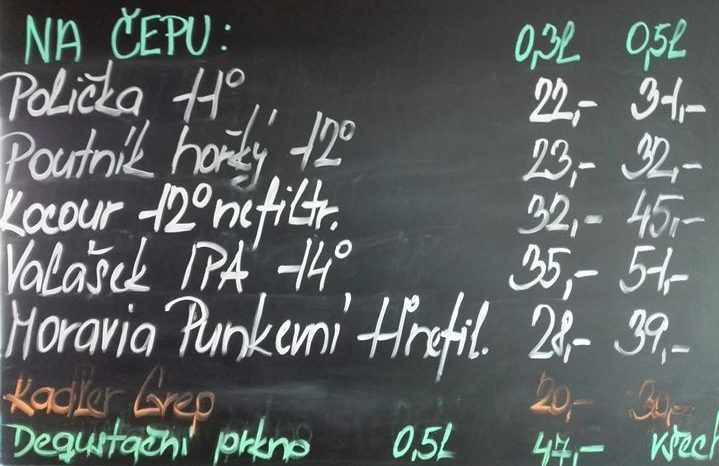 NA ČEPU: 0,3l 0,5l
Polička 11° 22,- 31,-
Poutník hořký 12° 23,- 32,-
Kocour 12° nefiltr. 32,- 45,-
Valašek IPA 14° 35,- 51,-
Moravia Punkevní 11° nefil. 28,- 39,-
Radler Grep 20,- 30,-
Degustační prkno 0,5l 47,- všech